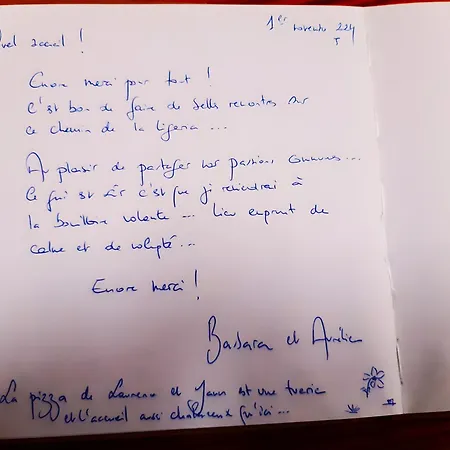 1er novembre 224
Quel accueil !
Encore merci pour tout !
C'est bon de faire de belles rencontres sur
ce chemin de la ligeria ...
Au plaisir de partager nos passions communes...
Ce qui est sûr c'est que je reviendrai à
la bouilloire volante ... lieu emprunt de
calme et de volupté...
Encore merci !
Barbara et Aurélien
La pizza de Laurence et Yann est une tuerie
et l'accueil aussi chaleureux qu'ici...